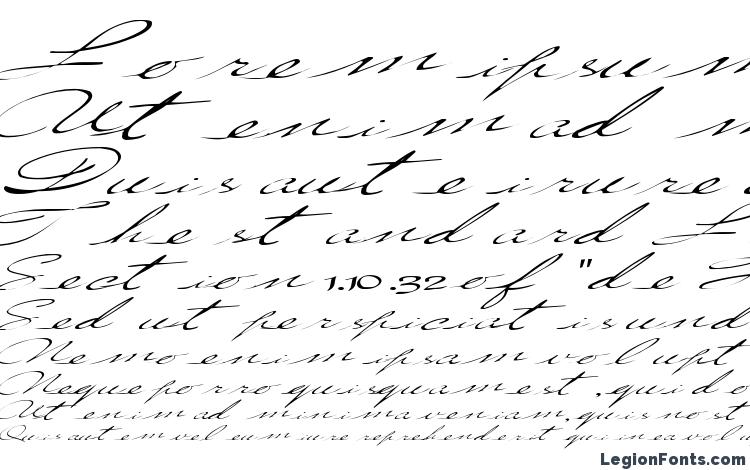 Lorem ipsum
Ut enim ad m
Duis aute irure
The standard L
Section 1.10.32 of "de
Sed ut perspiciatis und
Nemo enim ipsam volupt
Neque porro quisquam est, qui do
Ut enim ad minima veniam, quis nost
Quis autem vel eum iure reprehenderit qui in ea volu
LegionFonts.com